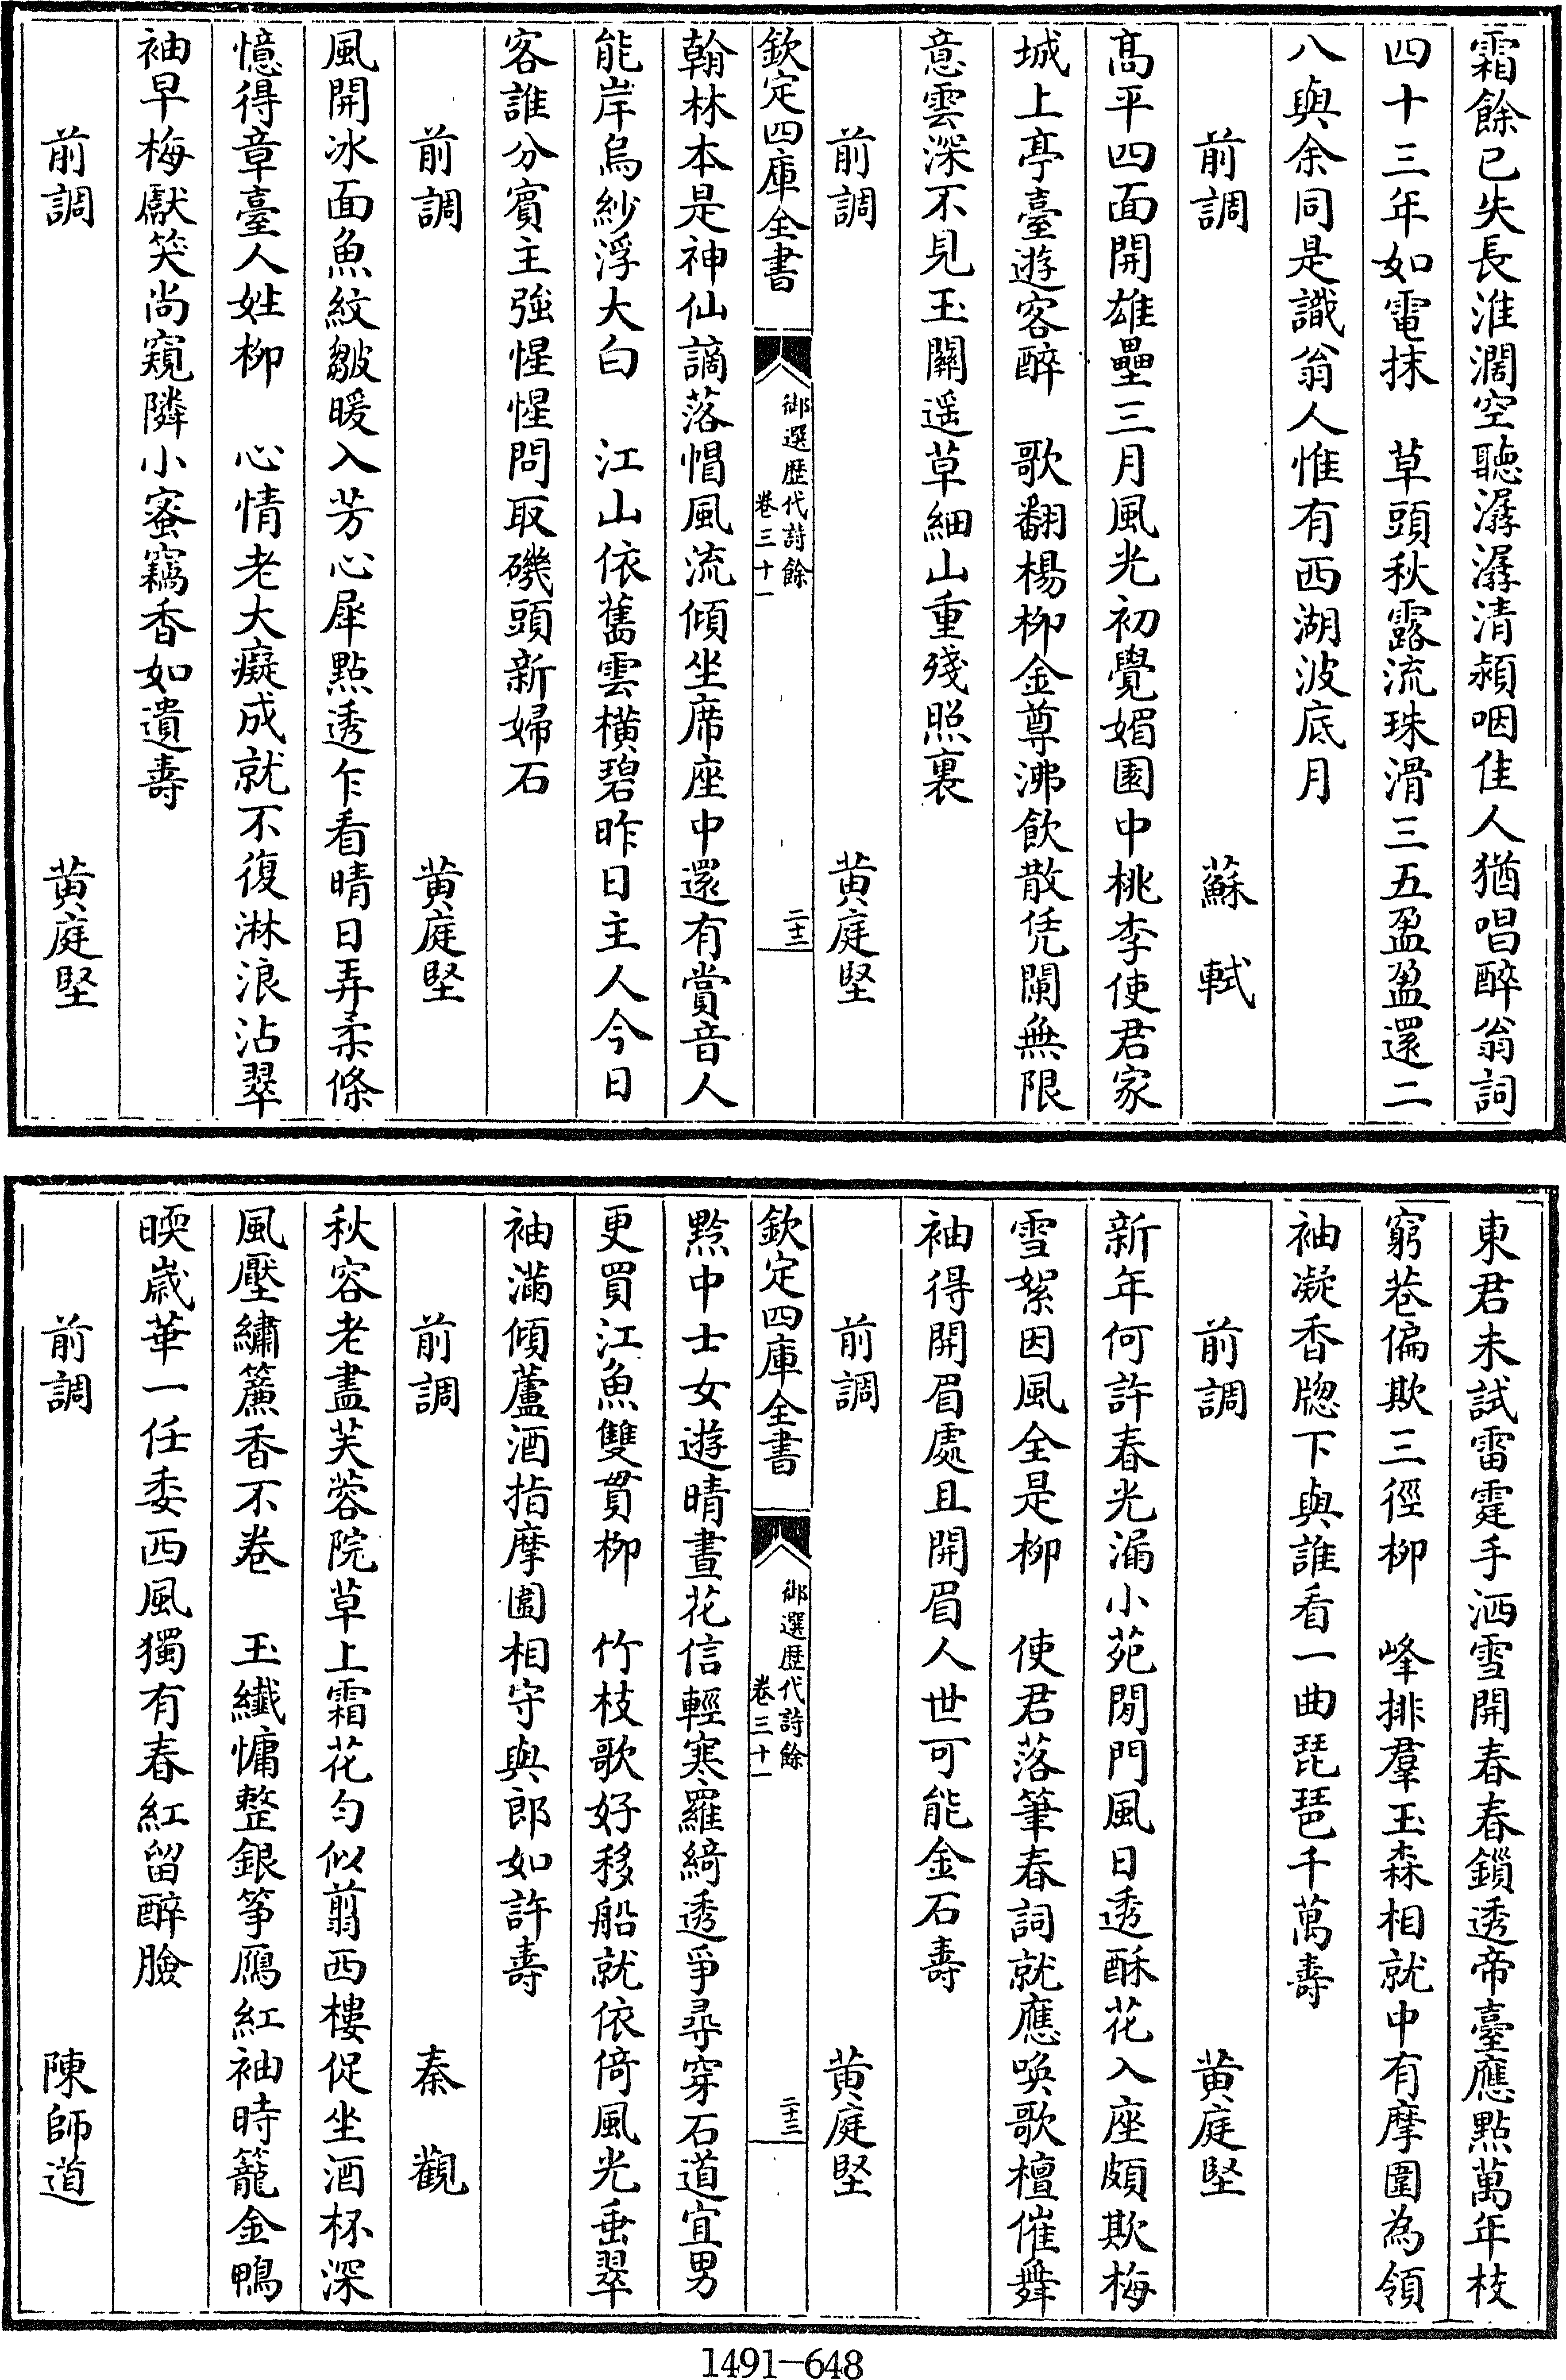 霜餘已失長淮濶空聽潺潺清潁咽佳人猶唱醉翁詞
四十三年如電抹　草頭秋露流珠滑三五盈盈還二
八與余同是識翁人惟有西湖波底月
前調　蘇軾
高平四面開雄壘三月風光初覺媚園中桃李使君家
城上亭臺遊客醉　歌翻楊柳金尊沸飲散凭闌無限
意雲深不見玉關遥草細山重殘照裏
前調　黄庭堅
欽定四庫全書　御選歷代詩餘 卷三十一　二十二
翰林本是神仙謫落帽風流傾坐席座中還有賞音人
能岸烏紗浮大白　江山依舊雲橫碧昨日主人今日
客誰分賓主強惺惺問取磯頭新婦石
前調　黄庭堅
風開冰面魚紋皺暖入芳心犀點透乍看晴日弄柔條
憶得章臺人姓柳　心情老大癡成就不復淋浪沾翠
袖早梅獻笑尚窺隣小蜜竊香如遺壽
前調　黄庭堅
東君未試雷霆手洒雪開春春鎖透帝臺應點萬年枝
窮巷偏欺三徑柳　峰排羣玉森相就中有摩圍為領
袖凝香牕下與誰看一曲琵琶千萬壽
前調　黄庭堅
新年何許春光漏小苑閉門風日透酥花入座頗欺梅
雪絮因風全是柳　使君落筆春詞就應喚歌檀催舞
袖得開眉處且開眉人世可能金石壽
前調　黄庭堅
欽定四庫全書　御選歷代詩餘 卷三十一　二十三
黔中士女遊晴晝花信輕寒羅綺透爭尋穿石道宜男
更買江魚雙貫柳　竹枝歌好移船就依倚風光垂翠
袖滿傾蘆酒指摩圍相守與郎如許壽
前調　秦觀
秋容老盡芙蓉院草上霜花勻似翦西樓促坐酒杯深
風壓繡簾香不卷　玉纖慵整銀筝鴈紅袖時籠金鴨
暖歲華一任委西風獨有春紅留醉臉
前調　陳師道
1491-648